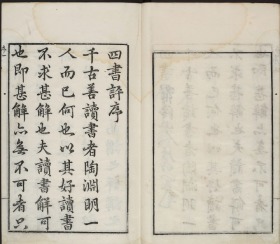 四書評序
千古善讀書者陶淵明一
人而已何也以其好讀書
不求甚解也夫讀書解可
也即甚解亦無不可者只